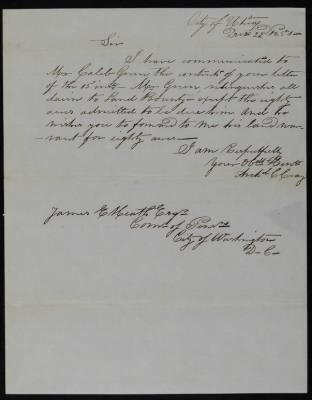 City of
Decr 22
Sir
I have communicated to
Mr Caleb Green the contents of your letter
of the 15th inst Mr Green relinquishes all
claim to Land Bounty except the eighty
acres admitted to be due him and he
wishes you to forward to me his land war-
rant for eighty acres
I am Respectfully
Your Obdt Servt
Archd C
James E Heath Esqr
Comr of Pens
City of Washington
D-C-